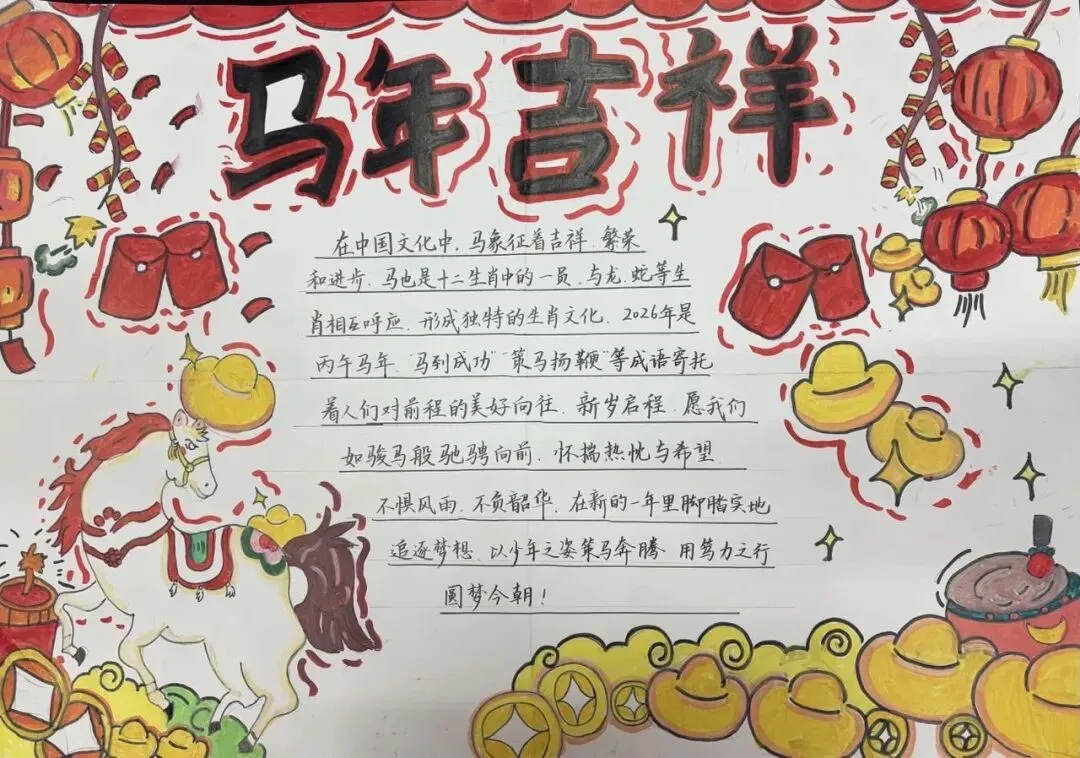 马年吉祥
在中国文化中,马象征着吉祥、繁荣
和进步.马也是十二生肖中的一员,与龙、蛇等生
肖相互呼应,形成独特的生肖文化.2026年是
丙午马年,"马到成功""策马扬鞭"等成语寄托
着人们对前程的美好向往.新岁启程,愿我们
如骏马般驰骋向前,怀揣热忱与希望,
不惧风雨,不负韶华,在新的一年里脚踏实地
追逐梦想,以少年之姿策马奔腾,用笃力之行
圆梦今朝!